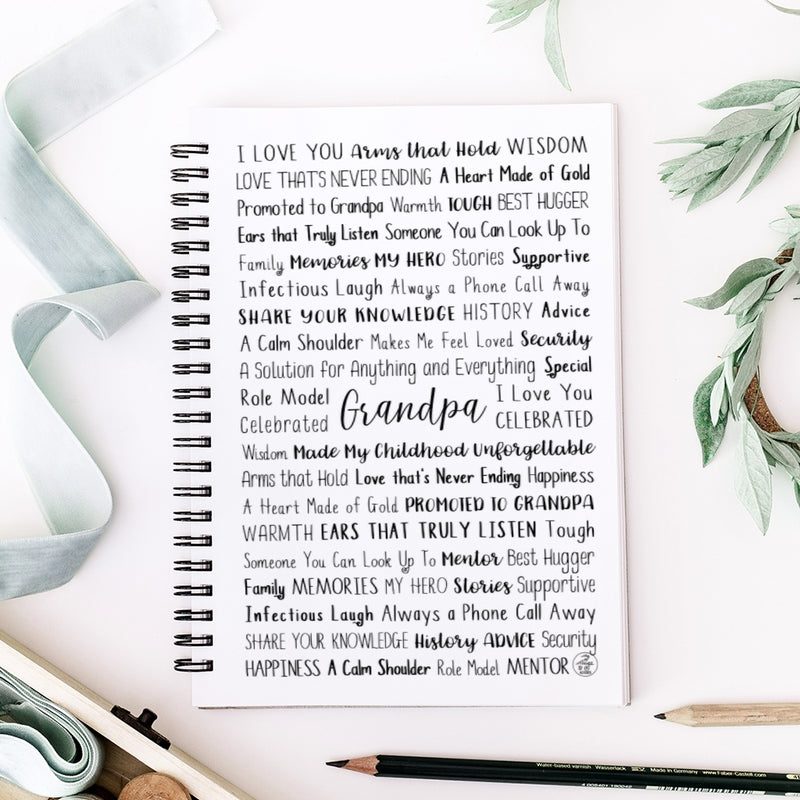 I LOVE YOU Arms that Hold WISDOM
LOVE THAT'S NEVER ENDING A Heart Made of Gold
Promoted to Grandpa Warmth TOUGH BEST HUGGER
Ears that Truly Listen Someone You Can Look Up To
Family Memories MY HERO Stories Supportive
Infectious Laugh Always a Phone Call Away
SHARE YOUR KNOWLEDGE HISTORY Advice
A Calm Shoulder Makes Me Feel Loved Security
A Solution for Anything and Everything Special
Role Model I Love You
Grandpa
Celebrated CELEBRATED
Wisdom Made My Childhood Unforgettable
Arms that Hold Love that's Never Ending Happiness
A Heart Made of Gold PROMOTED TO GRANDPA
WARMTH EARS THAT TRULY LISTEN Tough
Someone You Can Look Up To Mentor Best Hugger
Family MEMORIES MY HERO Stories Supportive
Infectious Laugh Always a Phone Call Away
SHARE YOUR KNOWLEDGE History ADVICE Security
HAPPINESS A Calm Shoulder Role Model MENTOR
Water-based varnish Wasserlack Made in Germany www.Faber-Castell.com